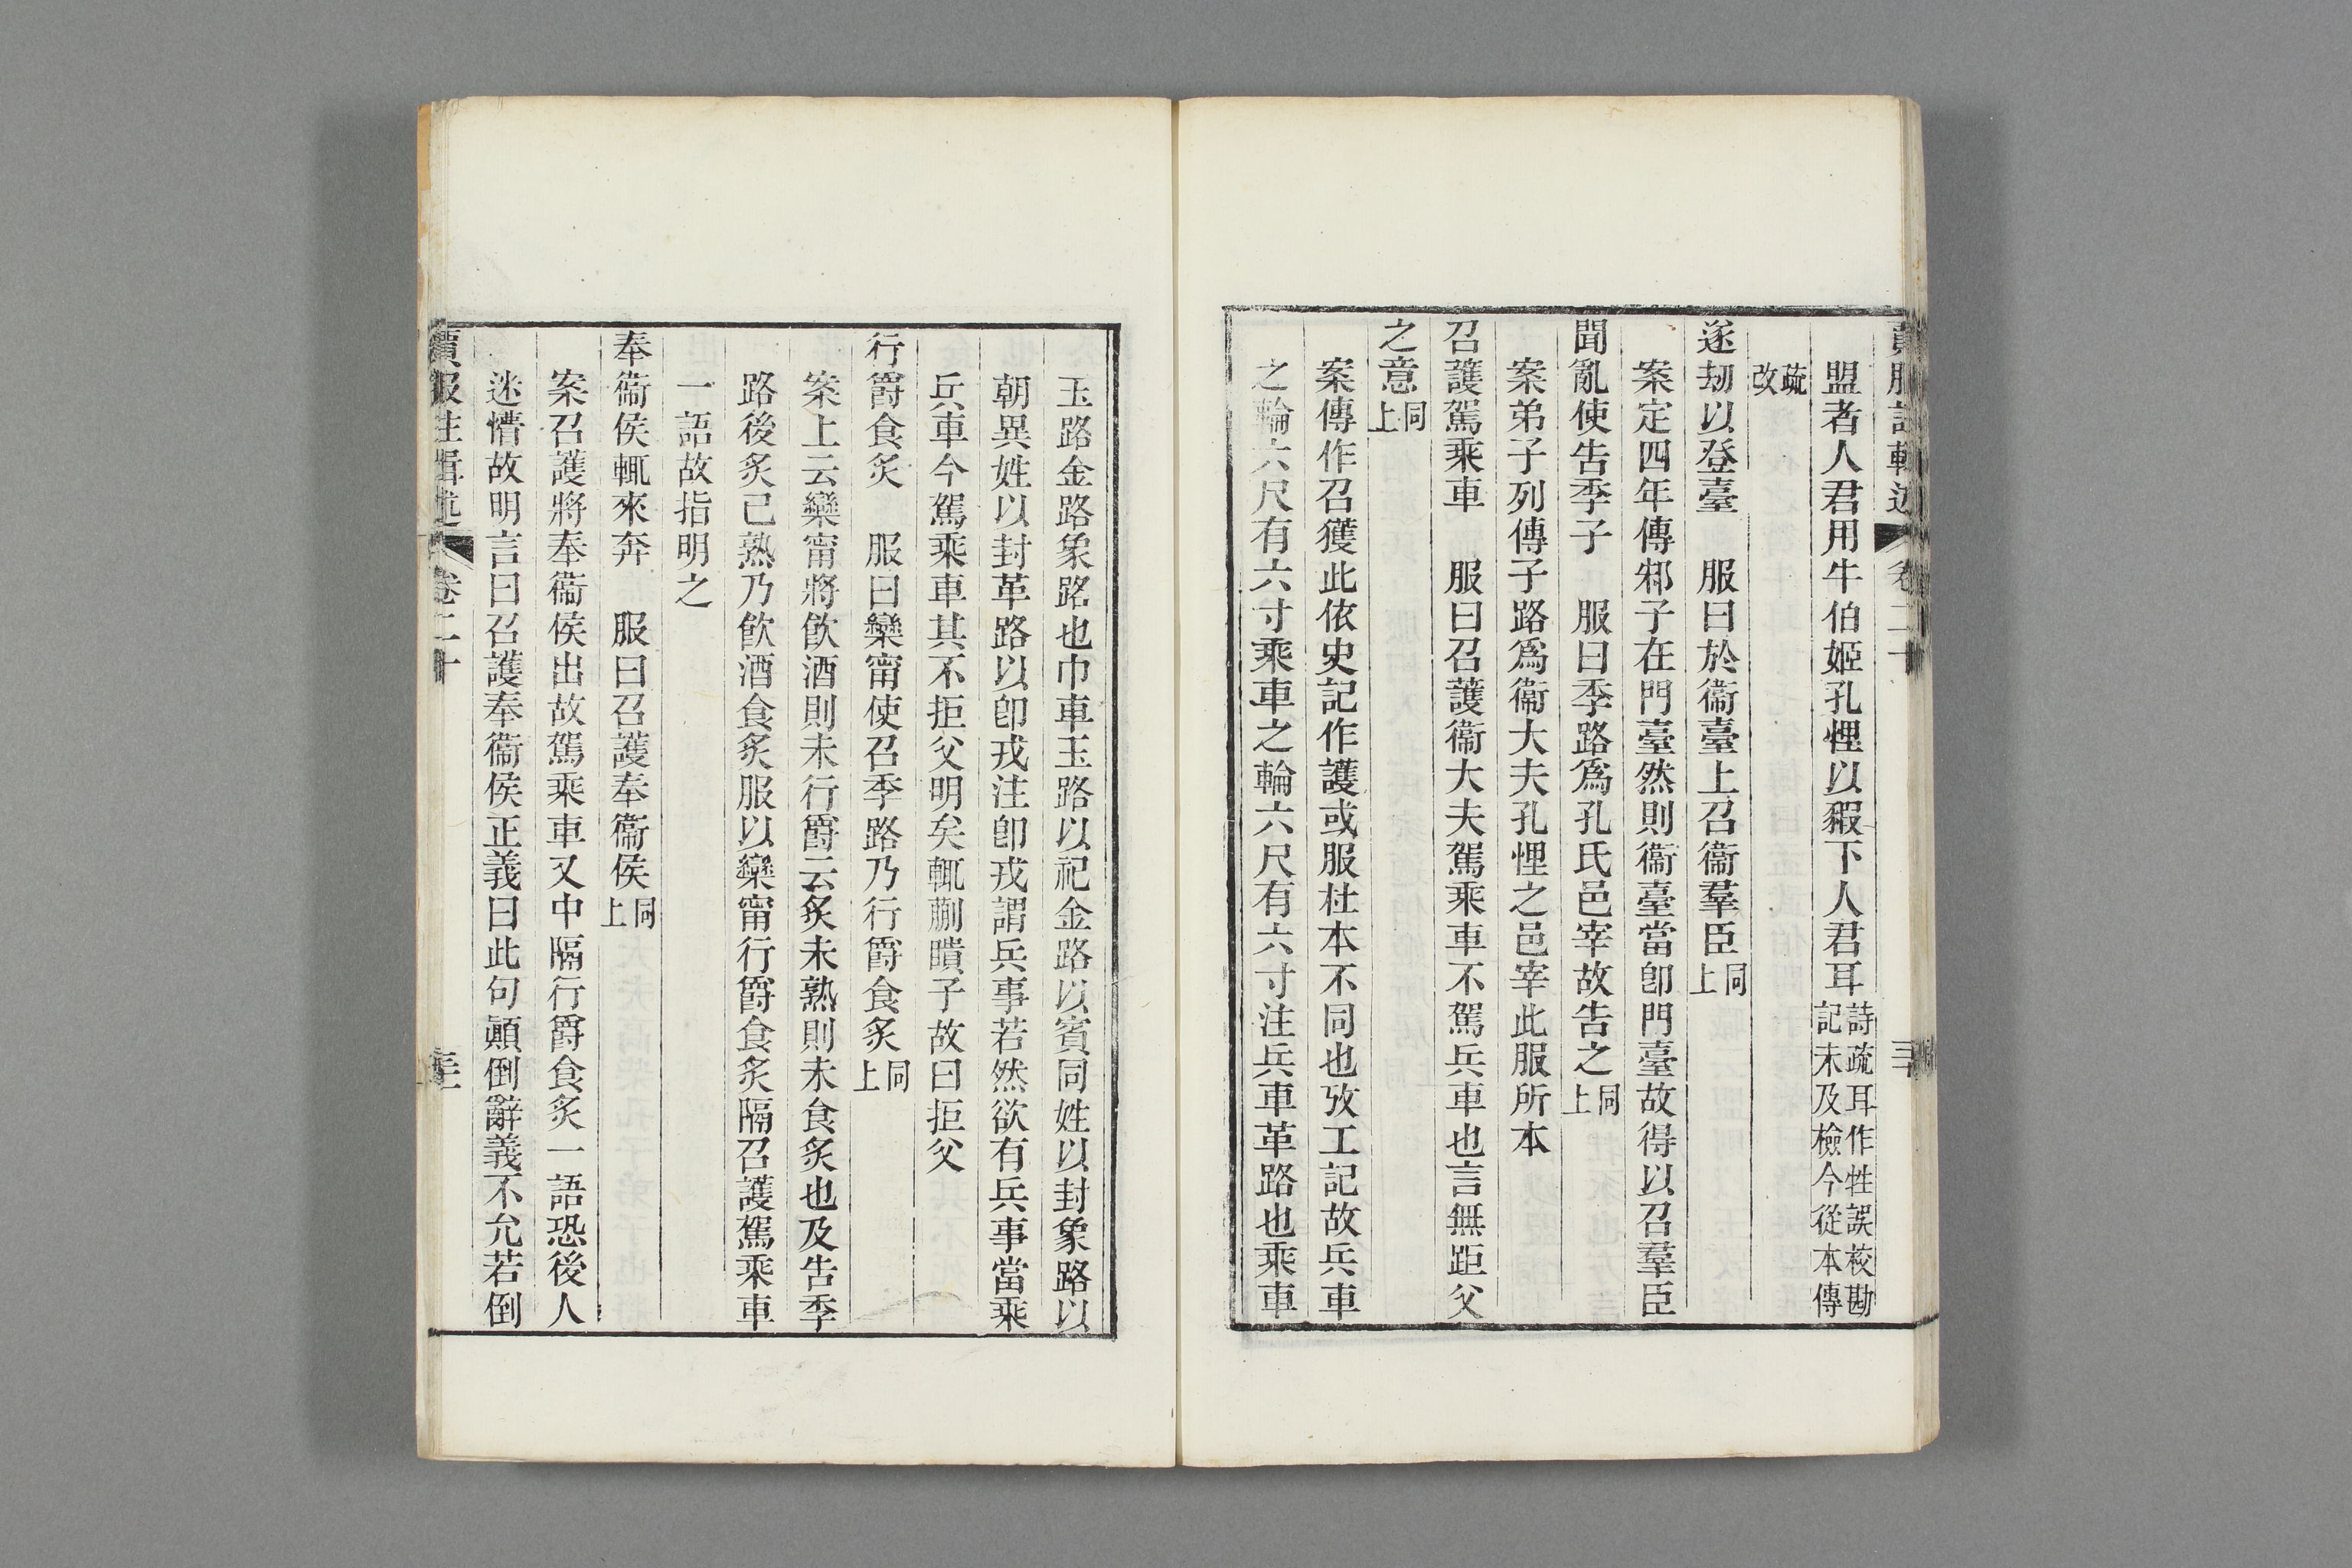 賈服注輯述 卷二十 三十
盟者人君用牛伯姬孔悝以豭下人君耳詩疏耳作牲誤校勘記未及檢今從本傳
疏改
遂劫以登臺 服曰於衞臺上召衞羣臣同上
案定四年傳邾子在門臺然則衞臺當卽門臺故得以召羣臣
聞亂使告季子 服曰季路爲孔氏邑宰故告之同上
案弟子列傳子路爲衞大夫孔悝之邑宰此服所本
召護駕乘車 服曰召護衞大夫駕乘車不駕兵車也言無距父
之意同上
案傳作召獲此依史記作護或服杜本不同也攷工記故兵車
之輪六尺有六寸乘車之輪六尺有六寸注兵車革路也乘車
玉路金路象路也巾車玉路以祀金路以賓同姓以封象路以
朝異姓以封革路以卽戎注卽戎謂兵事若然欲有兵事當乘
兵車今駕乘車其不拒父明矣輒蒯聵子故曰拒父
行爵食炙 服曰欒甯使召季路乃行爵食炙同上
案上云欒甯將飮酒則未行爵云炙未熟則未食炙也及告季
路後炙已熟乃飮酒食炙服以欒甯行爵食炙隔召護駕乘車
一語故指明之
奉衞侯輒來奔 服曰召護奉衞侯同上
案召護將奉衞侯出故駕乘車又中隔行爵食炙一語恐後人
迷懵故明言曰召護奉衞侯正義曰此句顚倒辭義不允若倒
賈服注輯述 卷二十 三十一